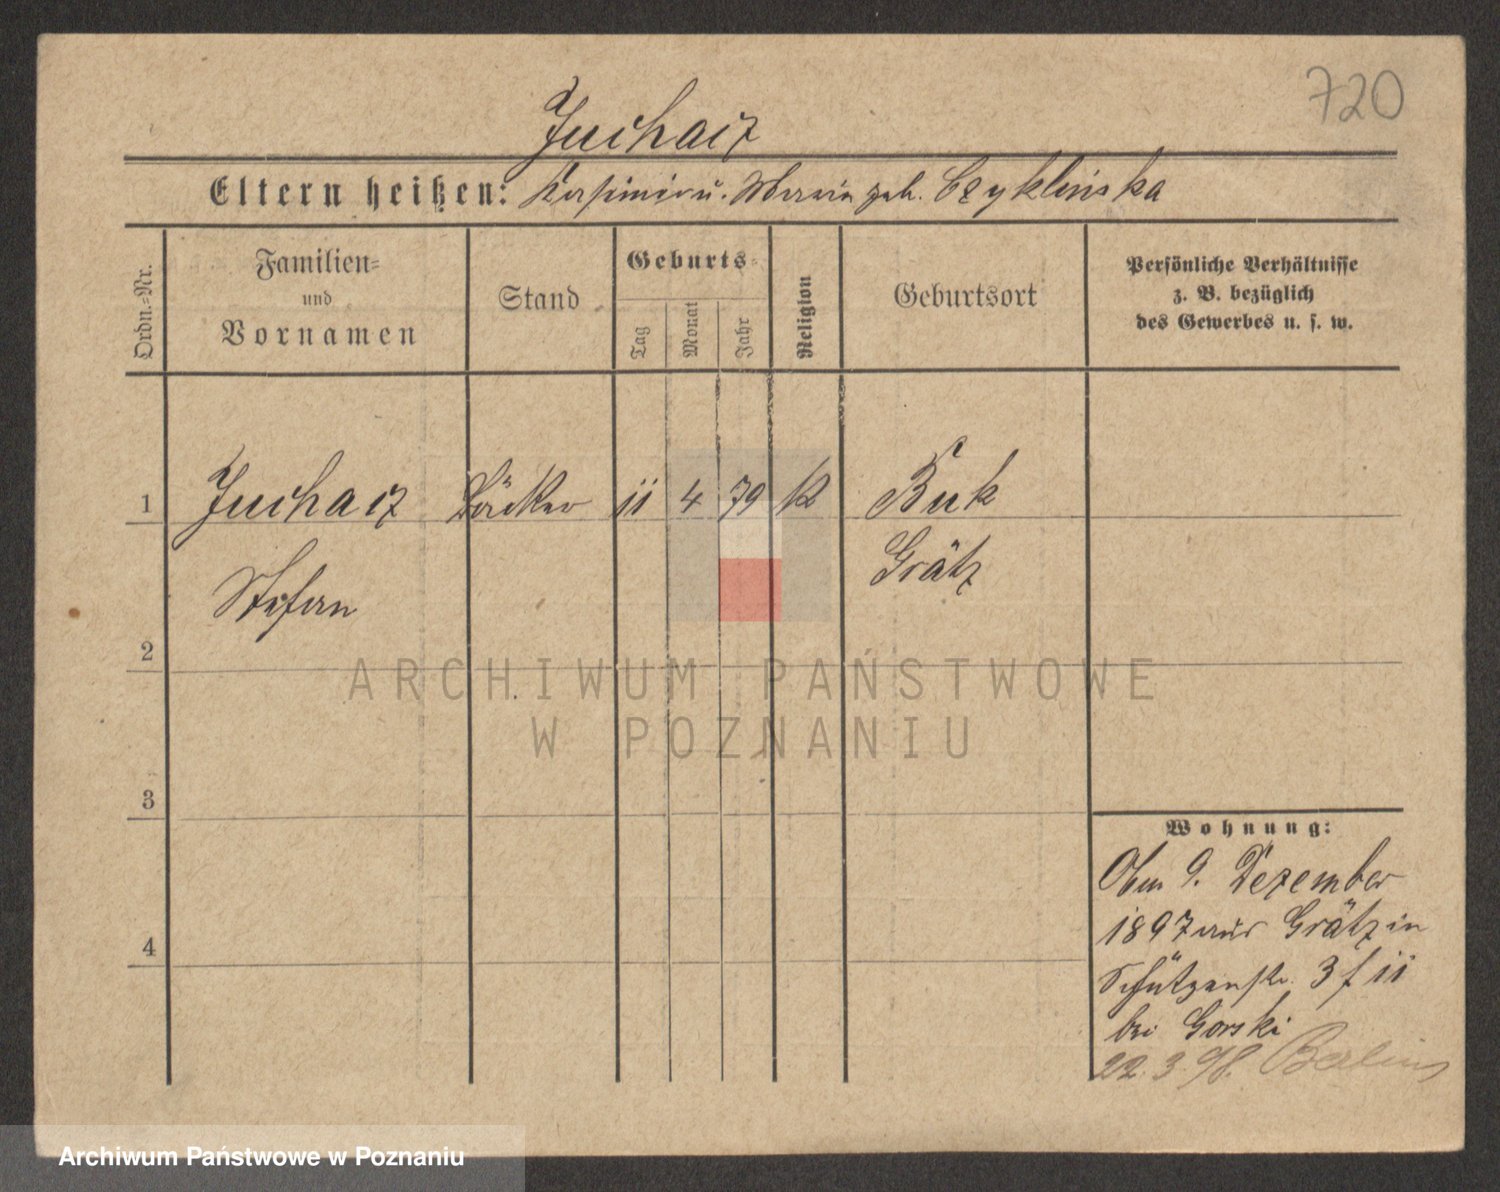 720
Juchacz
Eltern heißen: Kasimir u. Maria geb. Czyklinska
Ordn.-Nr.
Familien-
und
Vornamen
Stand
Geburts-
Tag
Monat
Jahr
Religion
Geburtsort
Persönliche Verhältnisse
z. B. bezüglich
des Gewerbes u. s. w.
1 Juchacz Bäcker 11 4 79 K Buk
Stefan Grätz
2
3
4
Wohnung:
9. Dezember
1897 aus Grätz in
Schützenstr. 3 f 11
bei Gorski
22.3.98. Berlin
ARCHIWUM PAŃSTWOWE
W POZNANIU
Archiwum Państwowe w Poznaniu